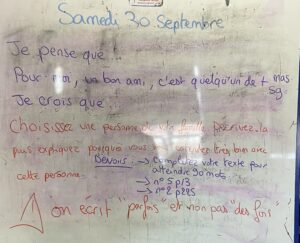 Samedi 30 Septembre
Je pense que ...
Pour moi, un bon ami, c'est quelqu'un de + mas. sg.
Je crois que ...
Choisissez une personne de votre famille. Décrivez-la
puis expliquez pourquoi vous vous entendez très bien avec
cette personne.
Devoirs: → complétez votre texte pour
atteindre 90 mots
→ n°5 p13
→ n°2 p
on écrit "parfois" et non pas "des fois"